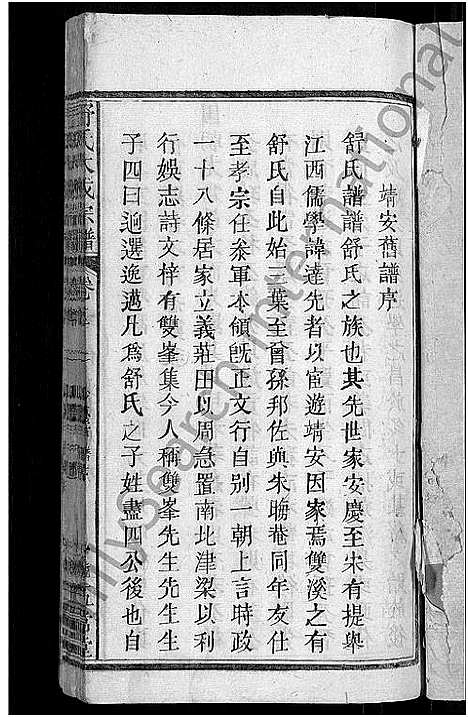 靖安舊譜序
舒氏譜譜舒氏之族也其先世家安慶至宋有提舉
江西儒學諱達先者以宦遊靖安因家焉雙溪之有
舒氏自此始三葉至曾孫邦佐與朱晦菴同年友仕
至孝宗任叅軍本領旣正文行自别一朝上言時政
一十八條居家立義莊田以周急置南北津梁以利
行娛志詩文梓有雙峯集今人稱雙峯先生先生生
子四曰逈選逸邁凡爲舒氏之子姓盡四公後也自
舒氏大成宗譜
卷
MySearch International